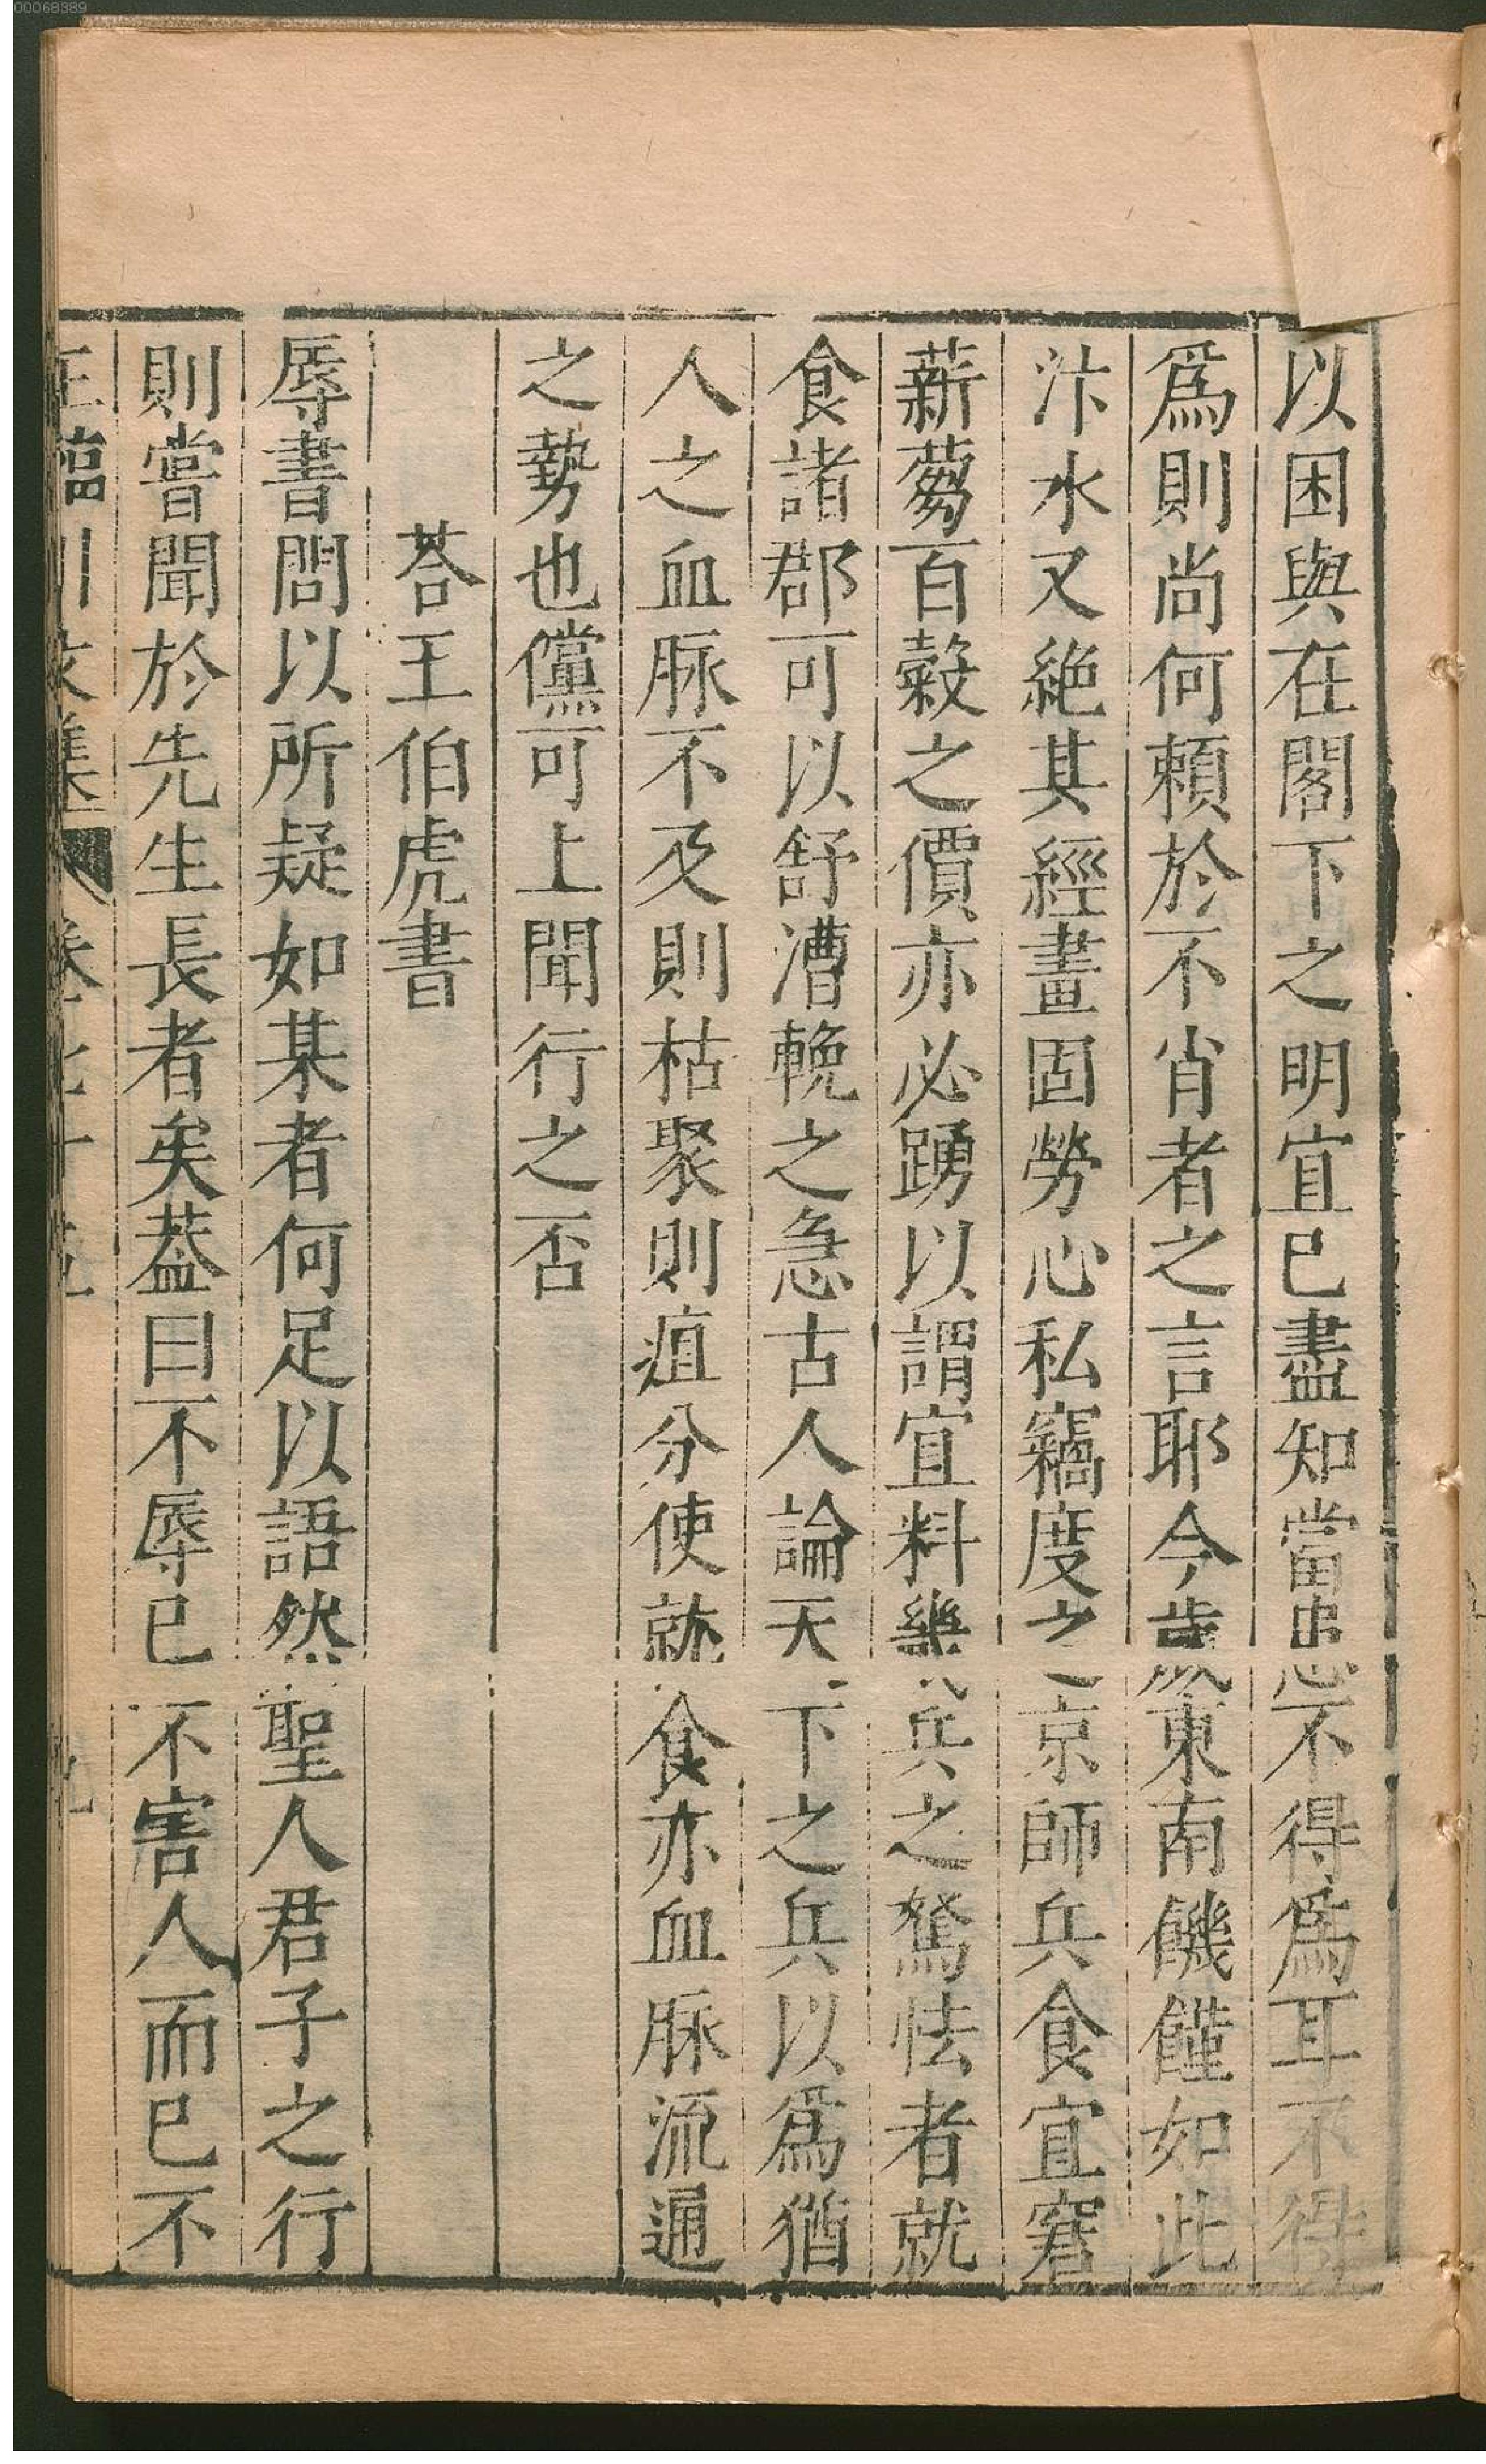 以困與在閣下之明宜已盡知當患不得爲耳不得
爲則尚何頼於不肖者之言耶今歲東南饑饉如此
汴水又絶其經畫固勞心私竊度之京師兵食宜窘
薪蒭百榖之價亦必踴以謂宜料幾兵之駑怯者就
食諸郡可以舒漕輓之急古人論天下之兵以爲猶
人之血脉不及則枯聚則疽分使就食亦血脉流通
之勢也儻可上聞行之否
荅王伯虎書
辱書問以所疑如某者何足以語然聖人君子之行
則嘗聞於先生長者矣葢曰不辱已不害人而已不
王臨川文集 卷七十五 九
00068389